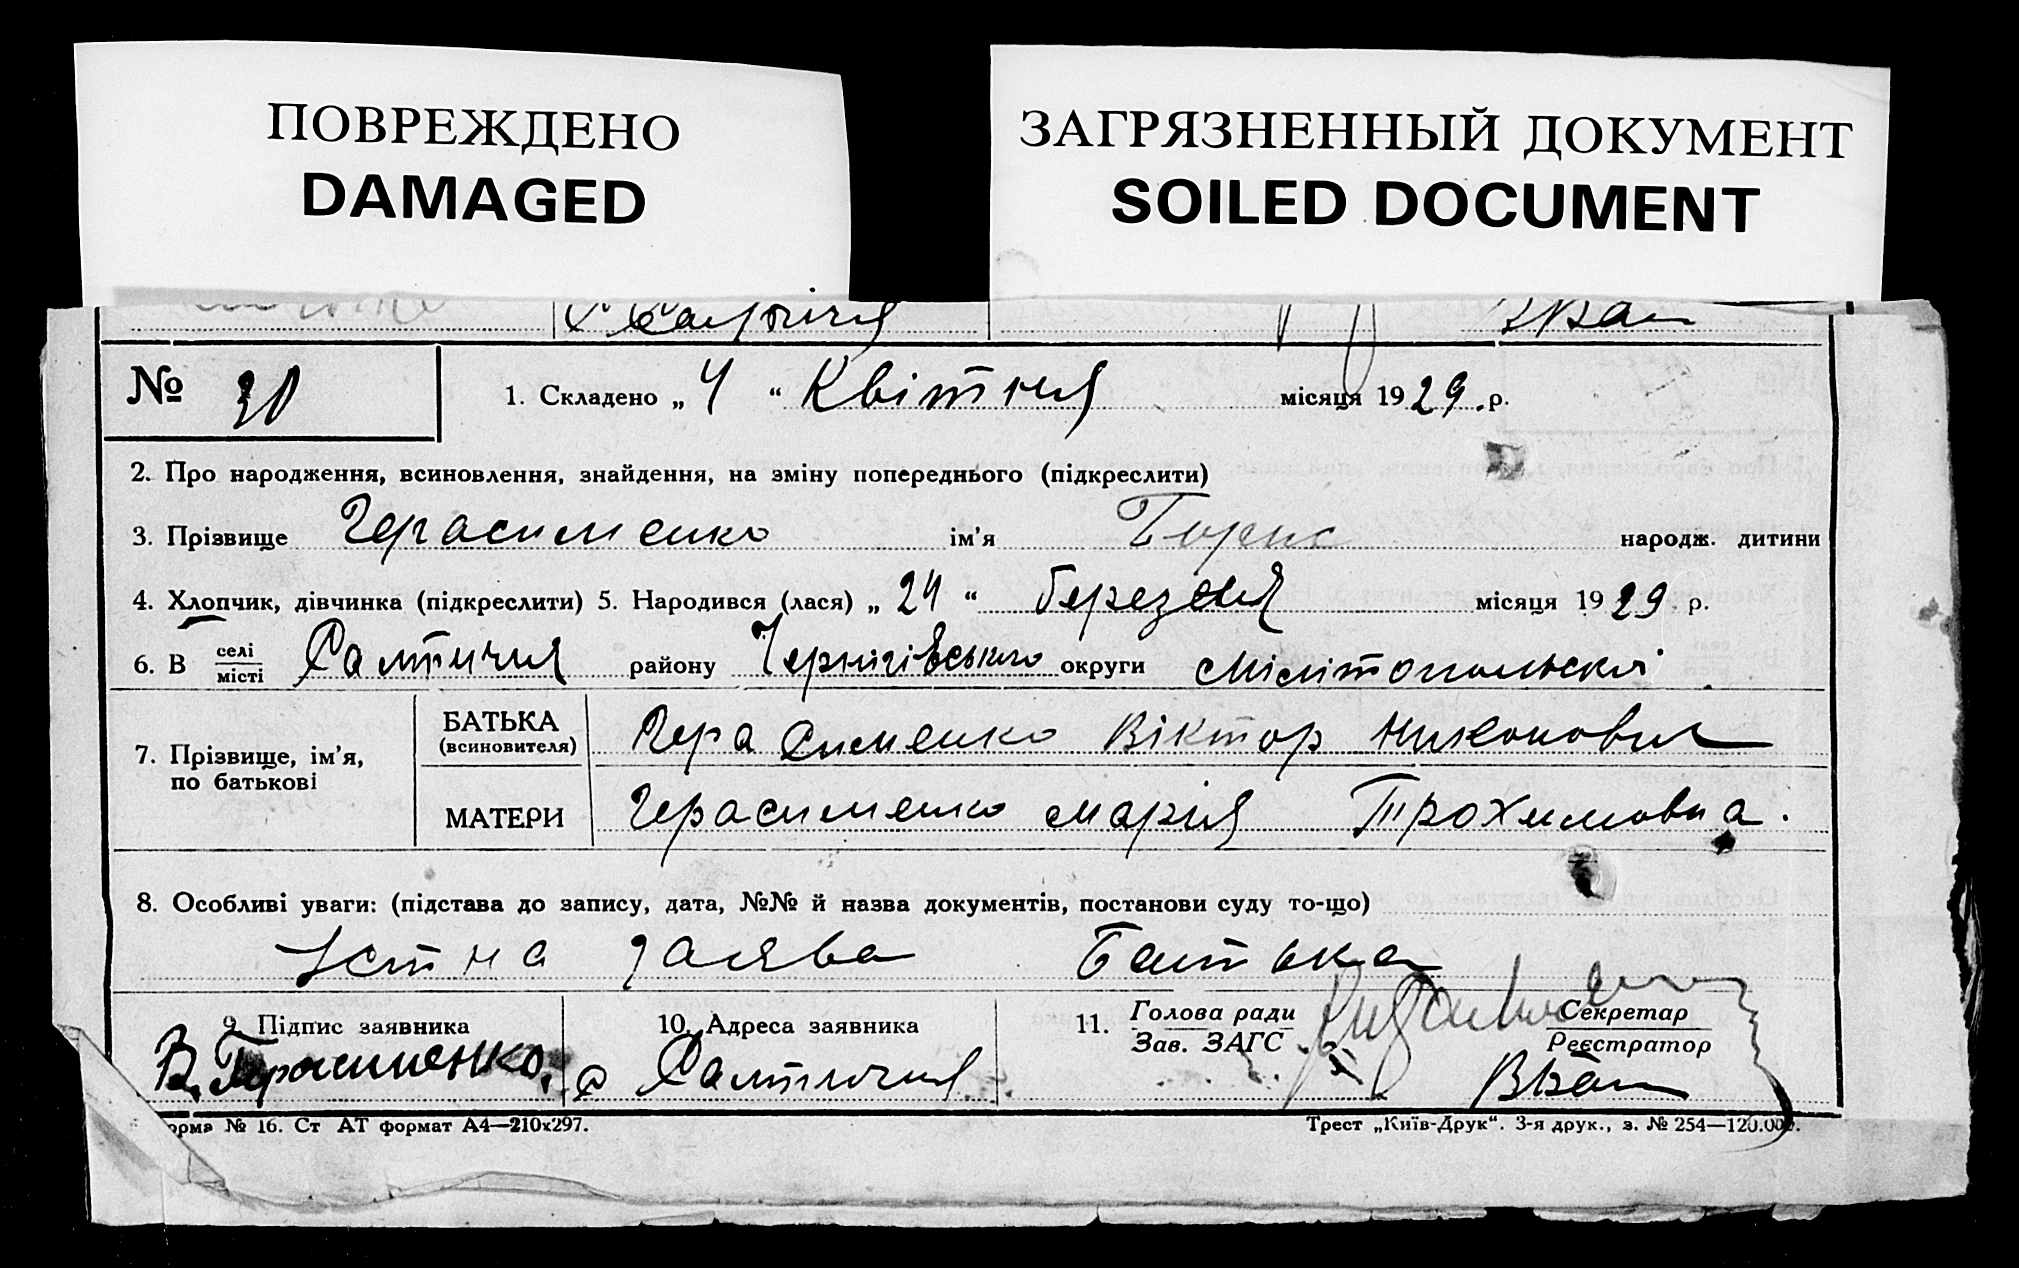 ПОВРЕЖДЕНО
DAMAGED
ЗАГРЯЗНЕННЫЙ ДОКУМЕНТ
SOILED DOCUMENT
№ 30 1. Складено „ 4 “ Квітня місяця 1929 . р.
2. Про народження, всиновлення, знайдення, на зміну попереднього (підкреслити)
3. Прізвище Герасименко ім'я Борис народж. дитини
4. Хлопчик, дівчинка (підкреслити) 5. Народився (лася) „ 24 “ березеня місяця 1929 . р.
6. В селі місті Салтичия району Чернігівського округи Мілітопольскі
7. Прізвище, ім'я, по батькові
БАТЬКА (всиновителя) Герасименко Віктор Никонович
МАТЕРИ Герасименко Марія Трохимовна.
8. Особливі уваги: (підстава до запису, дата, №№ й назва документів, постанови суду то-що)
Устна заява Батька
9. Підпис заявника 10. Адреса заявника 11. Голова ради Зав. ЗАГС Секретар Реєстратор
В. Герасименко, с Салтичия
орма № 16. Ст АТ формат А4—210х297. Трест „Київ-Друк“. 3-я друк., з. № 254—120.000.